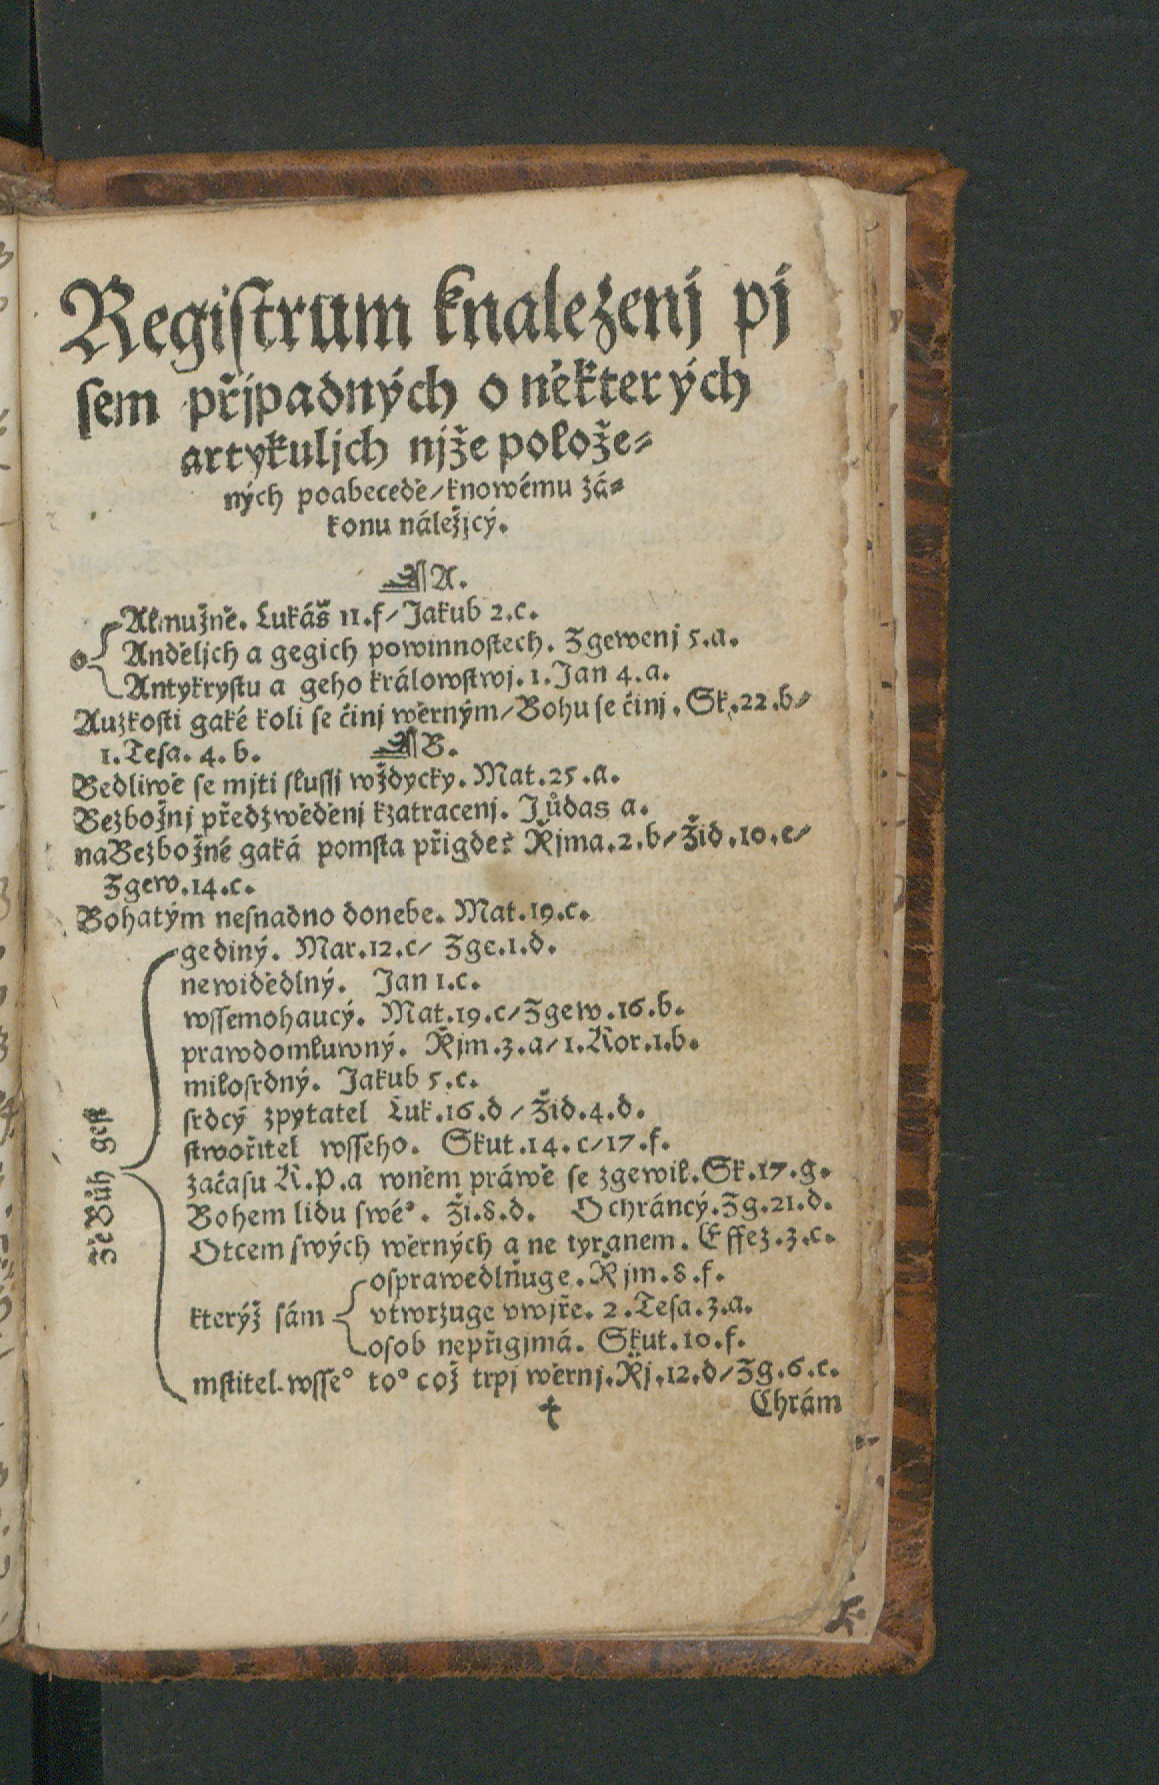 Registrum knalezenj pj
sem přjpadných o některých
artykuljch njže polože-
ných poabecedě/ knowému zá-
konu náležjcý.
A.
o
Almužně. Lukáš 11.f/ Jakub 2.c.
Anděljch a gegich powinnostech. Zgewenj 5.a.
Antykrystu a geho králowstwj. 1. Jan 4.a.
Auzkosti gaké koli se činj wěrným/ Bohu se činj. Sk.22.b/
1. Tesa. 4. b.
B.
Bedliwě se mjti slussj wždycky. Mat.25.a.
Bezbožnj předzwěděnj kzatracenj. Jůdas a.
naBezbožné gaká pomsta přigde? Řjma.2.b/ Žid.10.e/
Zgew.14.c.
Bohatým nesnadno donebe. Mat.19.c.
Že Bůh gest
gediný. Mar.12.c/ Zge.1.d.
newidědlný. Jan 1.c.
wssemohaucý. Mat.19.c/ Zgew.16.b.
prawdomluwný. Řjm.3.a/ 1.Kor.1.b.
milosrdný. Jakub 5.c.
srdcý zpytatel Luk.16.d/ Žid.4.d.
stwořitel wsseho. Skut.14.c/17.f.
začasu K.P.a wněm práwě se zgewil. Sk.17.g.
Bohem lidu swé°. Ži.8.d. Ochráncý. Zg.21.d.
Otcem swých wěrných a ne tyranem. Effez.3.c.
kterýž sám
osprawedlňuge. Řjm.8.f.
vtwrzuge vwjře. 2. Tesa.3.a.
osob nepřigjmá. Skut.10.f.
mstitel wsse° to° což trpj wěrnj. Řj.12.d/ Zg.6.c.
Chrám